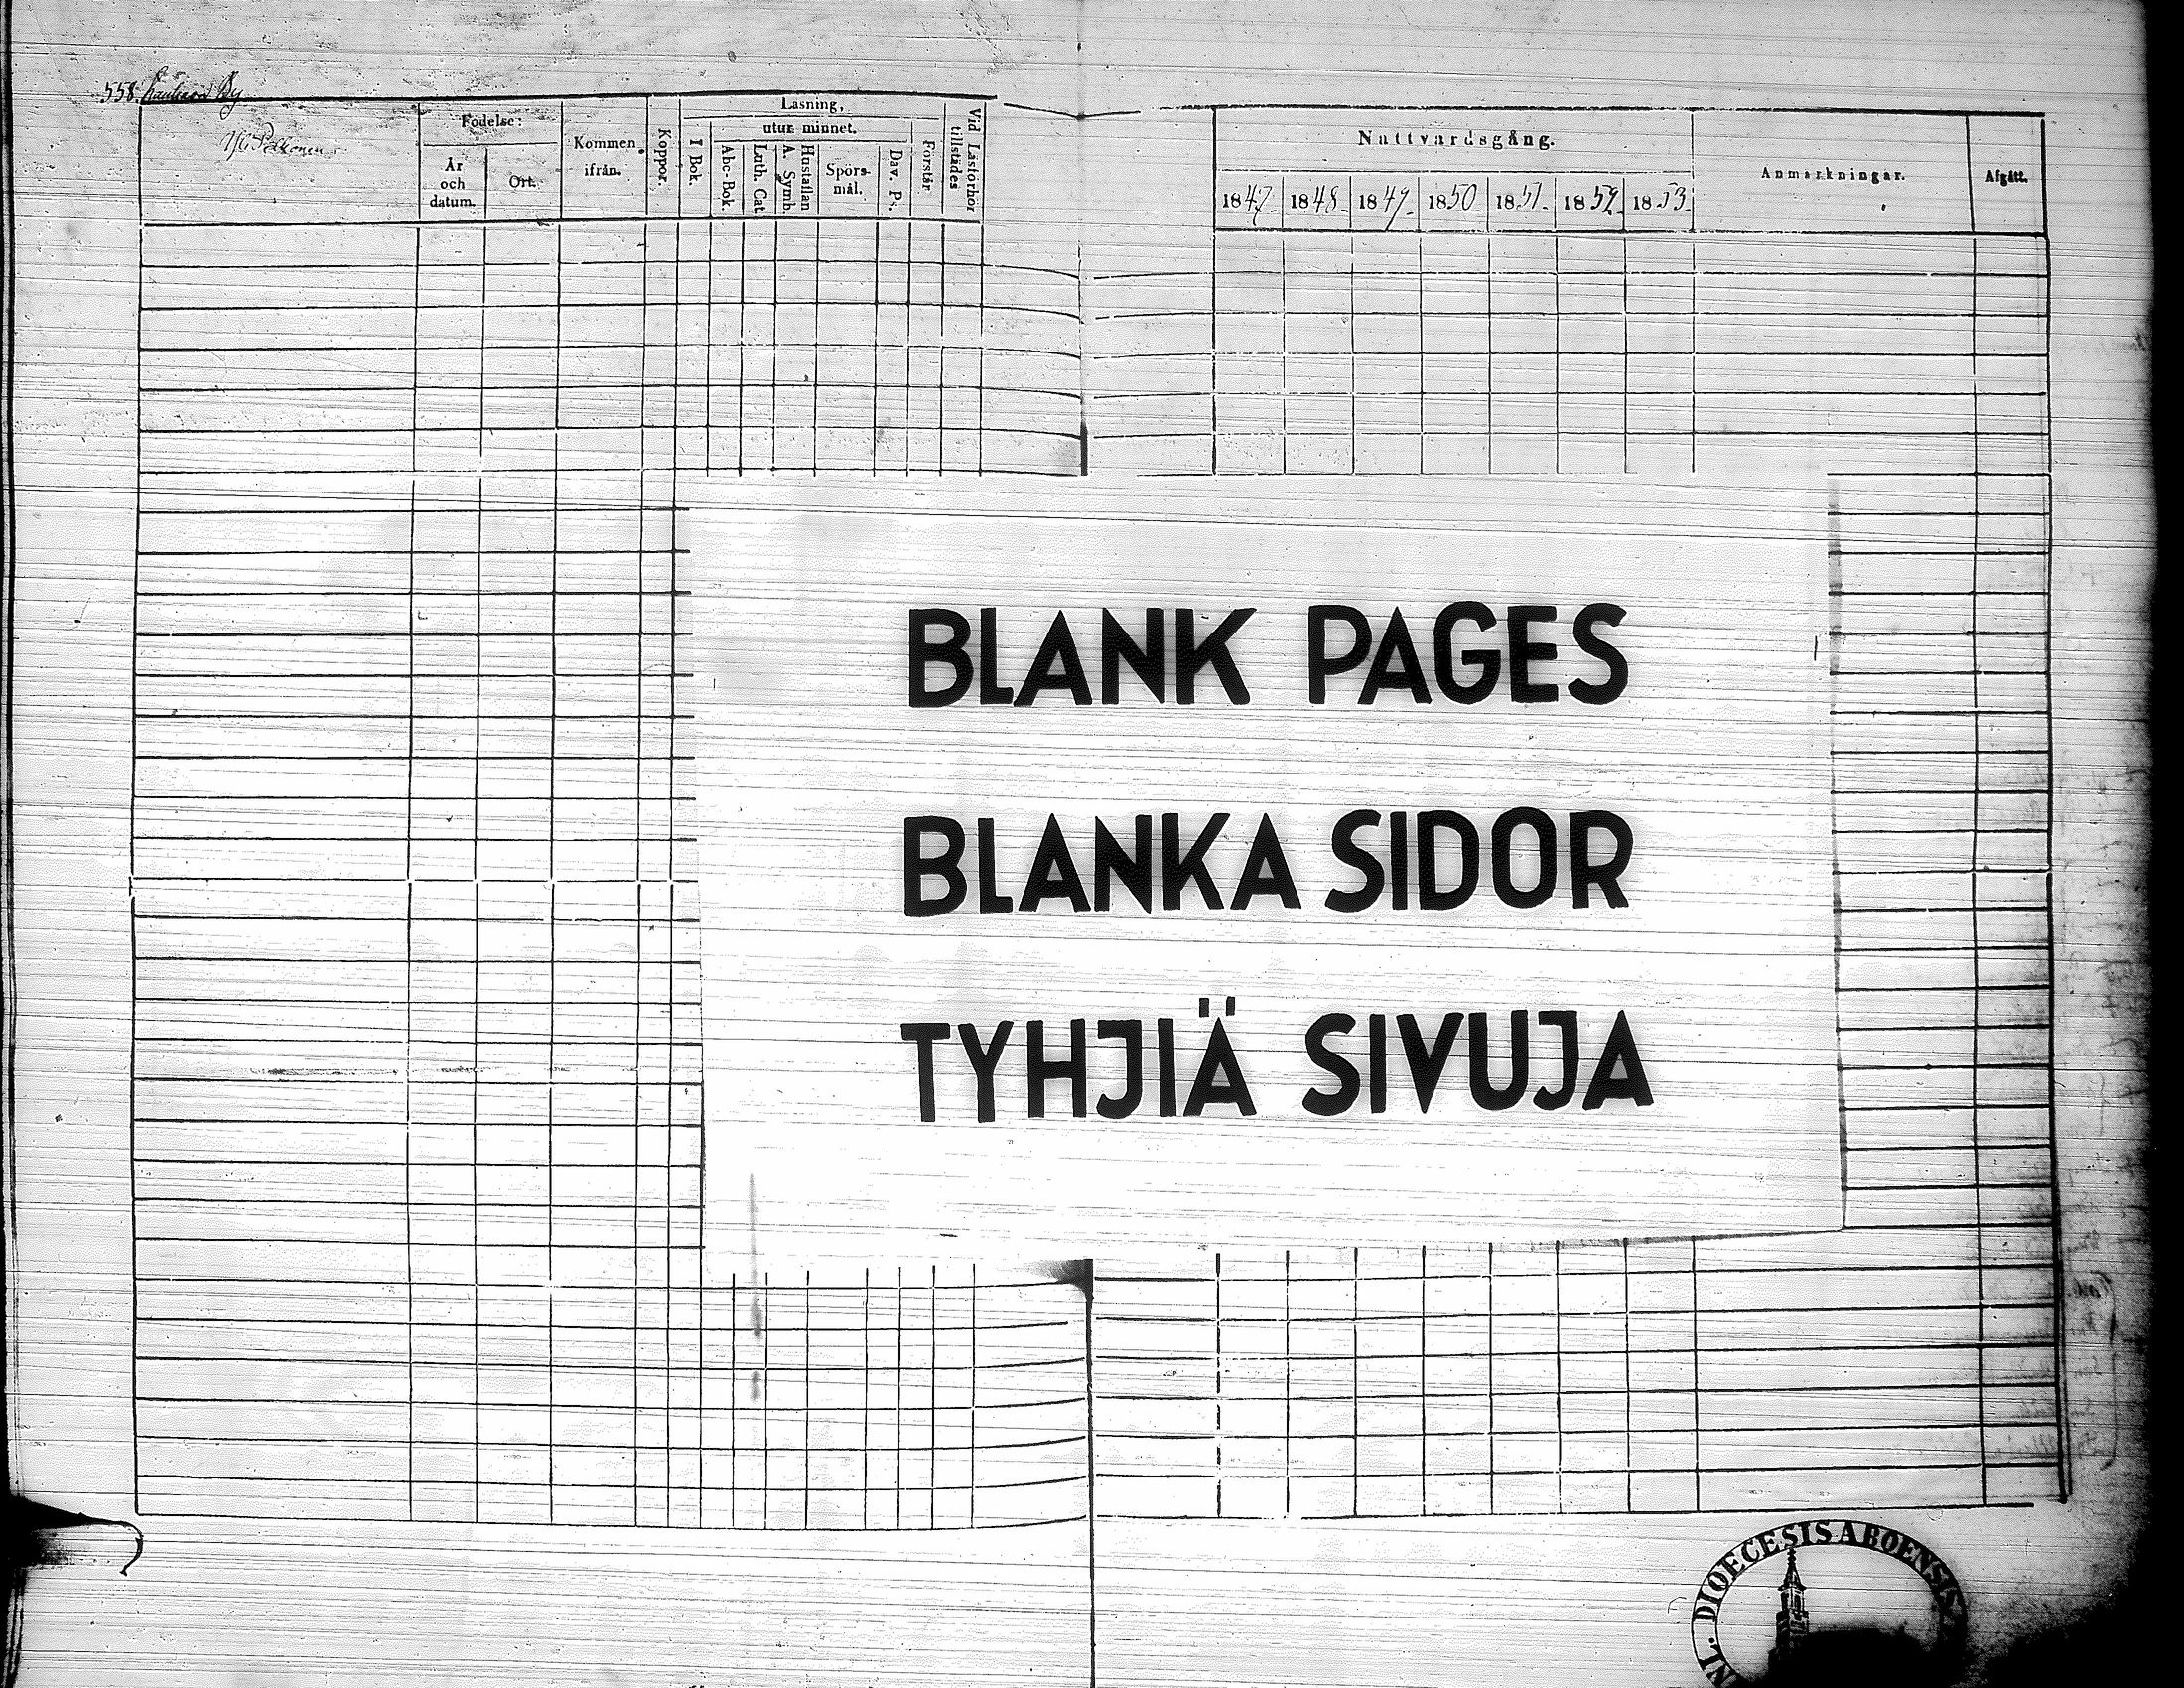 558. By
Födelse:
År
och
datum.
Ort.
Kommen
ifrån.
Koppor.
Läsning,
I Bok.
utur minnet.
Abc-Bok.
Luth. Cat.
A. Symb.
Hustaflan
Spörs-
mål.
Dav. Ps.
Förstår
Vid Läsförhör
tillstädes
Nattvardsgång.
1847.
1848.
1849.
1850.
1851.
1852.
1853.
Anmärkningar.
Afgått.
BLANK PAGES
BLANKA SIDOR
TYHJIÄ SIVUJA
NL. DIOECESIS ABOENSIS